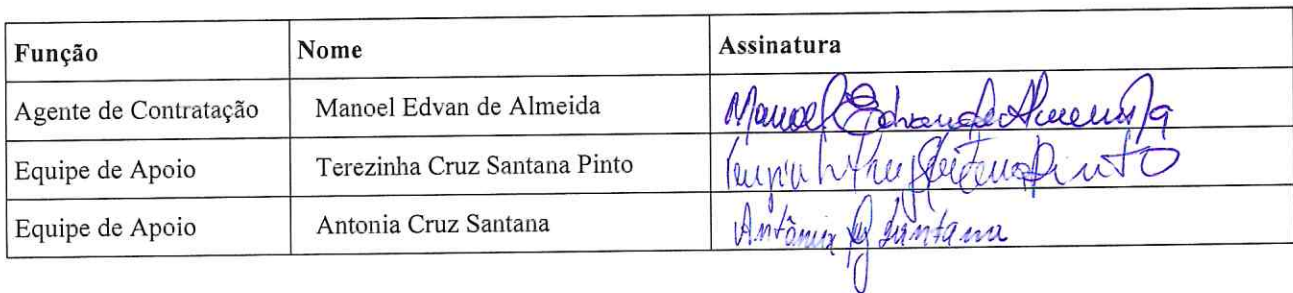 Função Nome Assinatura
Agente de Contratação Manoel Edvan de Almeida Manoel Edvan de Almeida
Equipe de Apoio Terezinha Cruz Santana Pinto Pinto
Equipe de Apoio Antonia Cruz Santana Antônia Santana